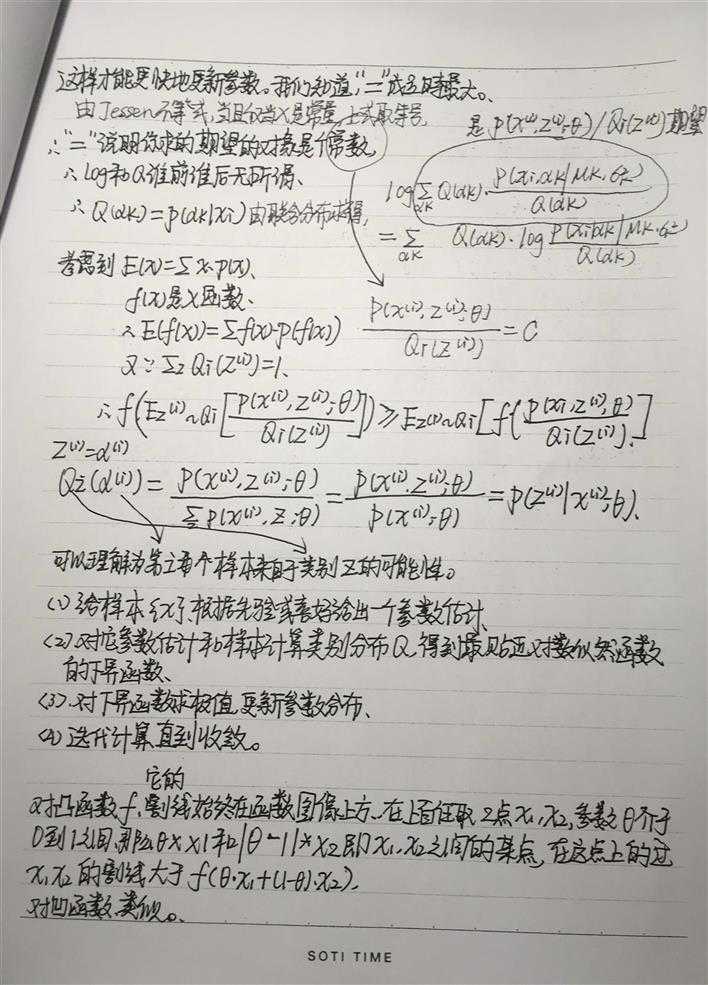 这样才能更快地更新参数。我们知道,“=”成立时最大。
由Jessen不等式,当且仅当X是常量,上式取等号
是 p(x⁽ⁱ⁾,z⁽ⁱ⁾;θ)/Qi(z⁽ⁱ⁾)期望
∴“=”说明你求的期望的对象是个常数,
∴log和Q谁前谁后无所谓、
log Σ_{αK} Q(αK)·p(xi,αK|μK,σK²)/Q(αK)
∴Q(αK)=p(αK|xi)由联合分布求得,
= Σ_{αK} Q(αK)·log p(xi,αK|μK·σK²)/Q(αK)
考虑到 E(x)=Σx·p(x)、
f(x)是X函数、
∴E(f(x))=Σf(x)·p(f(x))
p(x⁽ⁱ⁾,z⁽ⁱ⁾;θ)/Qi(z⁽ⁱ⁾)=C
又∵Σz Qi(z⁽ⁱ⁾)=1、
∴f(E_{z⁽ⁱ⁾~Qi}[p(x⁽ⁱ⁾,z⁽ⁱ⁾;θ)/Qi(z⁽ⁱ⁾)])≥E_{z⁽ⁱ⁾~Qi}[f(p(xi,z⁽ⁱ⁾;θ)/Qi(z⁽ⁱ⁾))]
z⁽ⁱ⁾=α⁽ⁱ⁾
Qi(α⁽ⁱ⁾)=p(x⁽ⁱ⁾,z⁽ⁱ⁾;θ)/Σ_z p(x⁽ⁱ⁾,z;θ)=p(x⁽ⁱ⁾,z⁽ⁱ⁾;θ)/p(x⁽ⁱ⁾;θ)=p(z⁽ⁱ⁾|x⁽ⁱ⁾;θ).
可以理解为第i个样本来自于类别Z的可能性。
(1)给样本{x},根据先验或喜好给出一个参数估计、
(2)对它参数估计和样本计算类别分布Q,得到最贴近对数似然函数
的下界函数、
(3)对下界函数求极值,更新参数分布、
(4)迭代计算直到收敛。
它的
对凸函数f,割线始终在函数图像上方、在上面任取2点x₁,x₂,参数θ介于
0到1之间,那么θ×x1和|θ-1|*x2即x₁,x₂之间的某点,在这点上的过
x₁x₂的割线大于f(θ·x₁+(1-θ)·x₂)、
对凹函数类似。
SOTI TIME